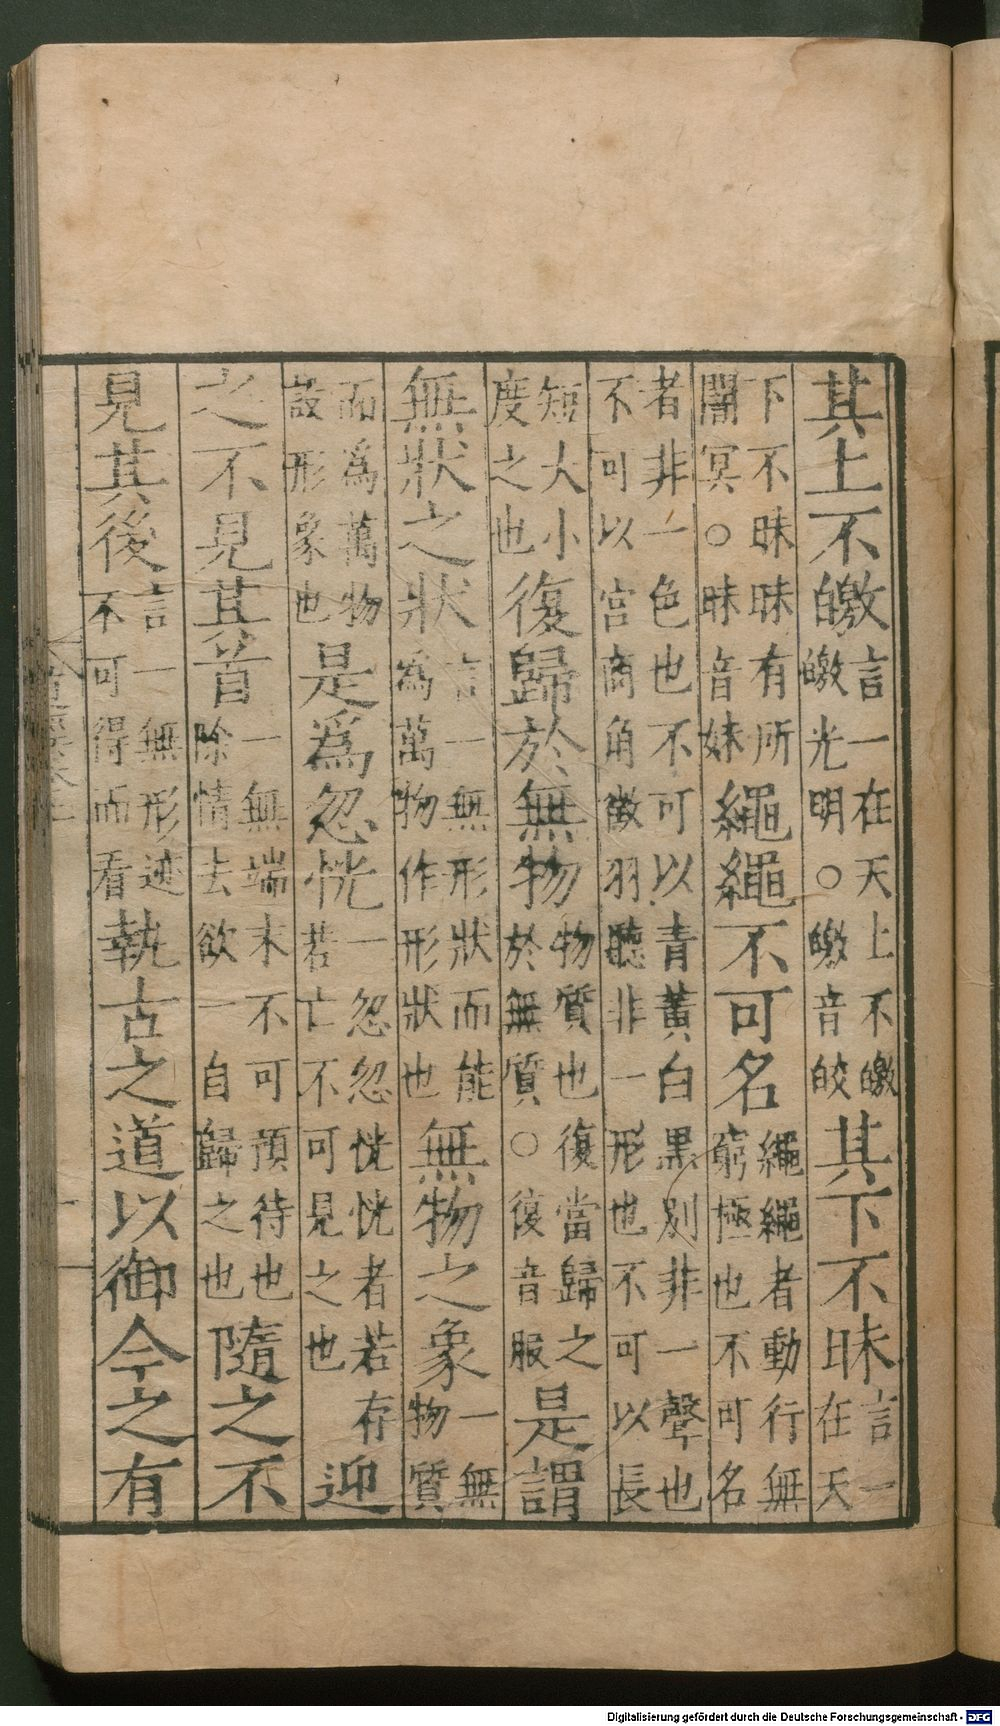 其上不皦言一在天上不皦皦光明○皦音皎其下不昧言一在天
下不昧昧有所闇冥○昧音妹繩繩不可名繩繩者動行無窮極也不可名
者非一色也不可以青黃白黑別非一聲也不可以宮商角徵羽聽非一形也不可以長
短大小度之也復歸於無物物質也復當歸之於無質○復音服是謂
無狀之狀言一無形狀而能為萬物作形狀也無物之象一無物質
而為萬物設形象也是爲忽恍一忽忽恍恍者若存若亡不可見之也迎
之不見其首一無端末不可預待也除情去欲一自歸之也隨之不
見其後言一無形迹不可得而看執古之道以御今之有
Digitalisierung gefördert durch die Deutsche Forschungsgemeinschaft - DFG